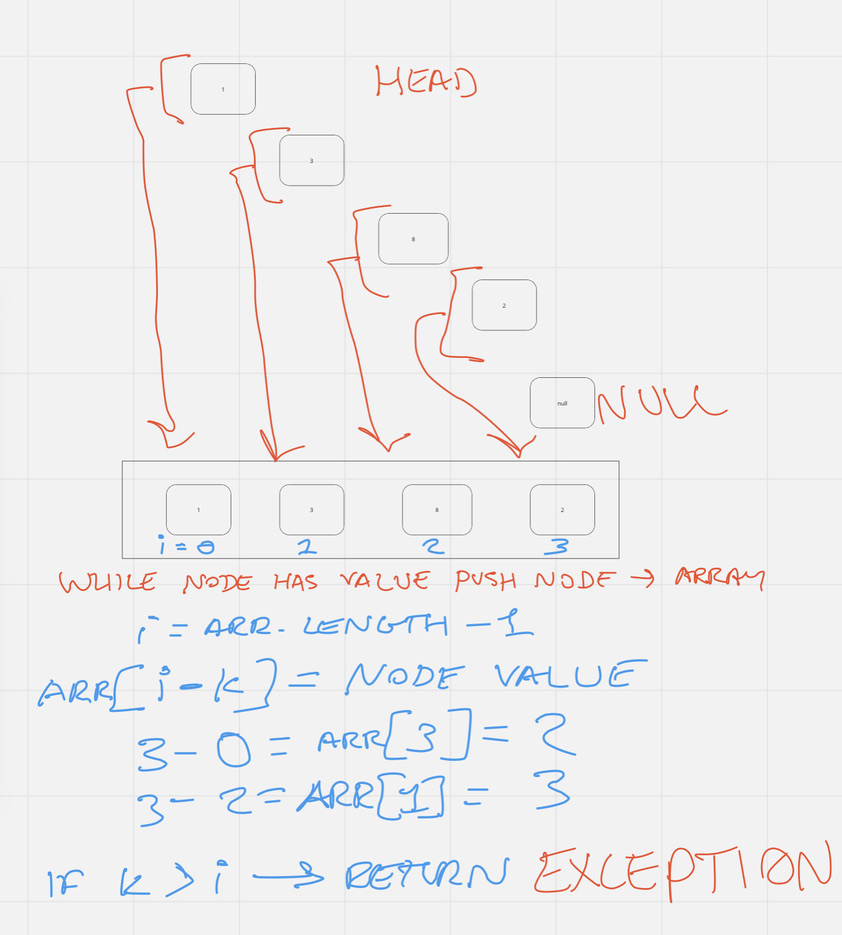 1
HEAD
3
8
2
null NULL
1 3 8 2
i = 0 1 2 3
WHILE NODE HAS VALUE PUSH NODE → ARRAY
i = ARR. LENGTH - 1
ARR[i - k] = NODE VALUE
3 - 0 = ARR[3] = 2
3 - 2 = ARR[1] = 3
IF k > i → RETURN EXCEPTION